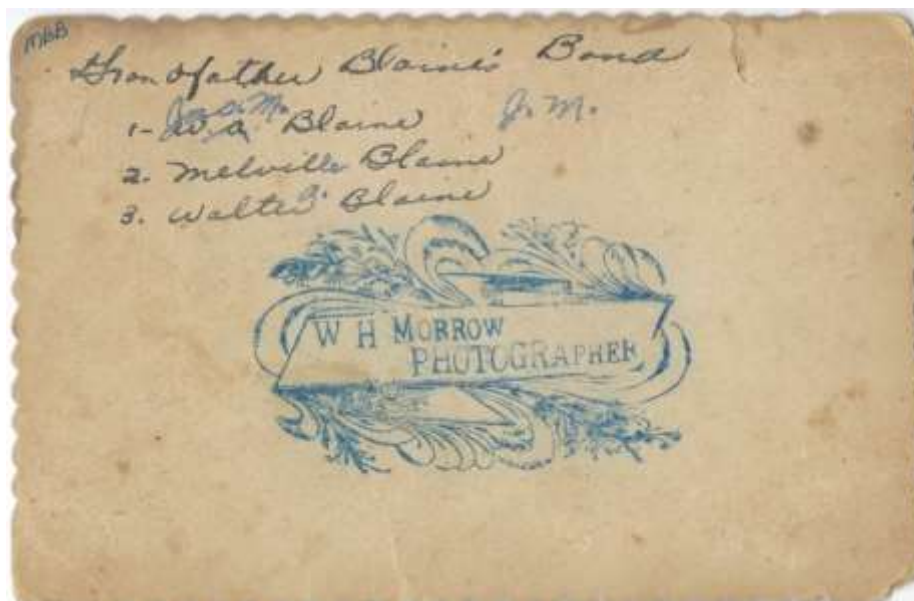 MBB
Grandfather Blaine's Band
Jas. M. J. M.
1- W a Blaine
2. Melville Blaine
3. Walter J. Blaine
W H MORROW
PHOTOGRAPHER